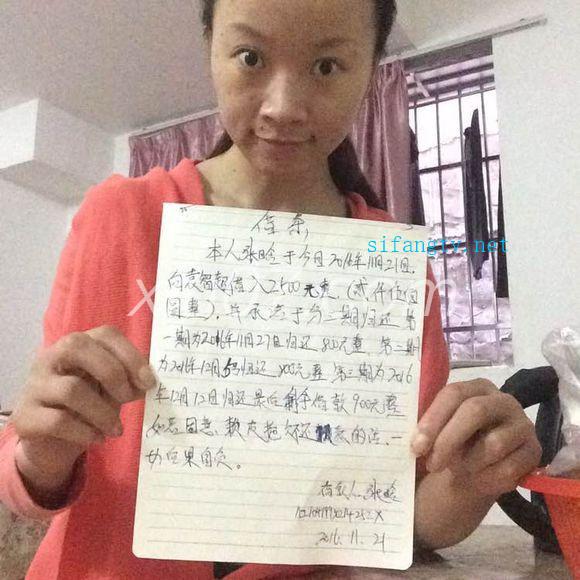 借条
本人 于今日2016年11月21日,
向 借入2500元整,(贰仟伍佰
圆整),并承诺于分三期归还 第
一期为2016年11月27日归还800元整,第二期
为2016年12月 归还800元整 第三期为2016
年12月12日归还最后 借款900元整
如若恶意 赖皮拖欠还款的话,一
切后果自负。
2016.11.21
sifangtv.net